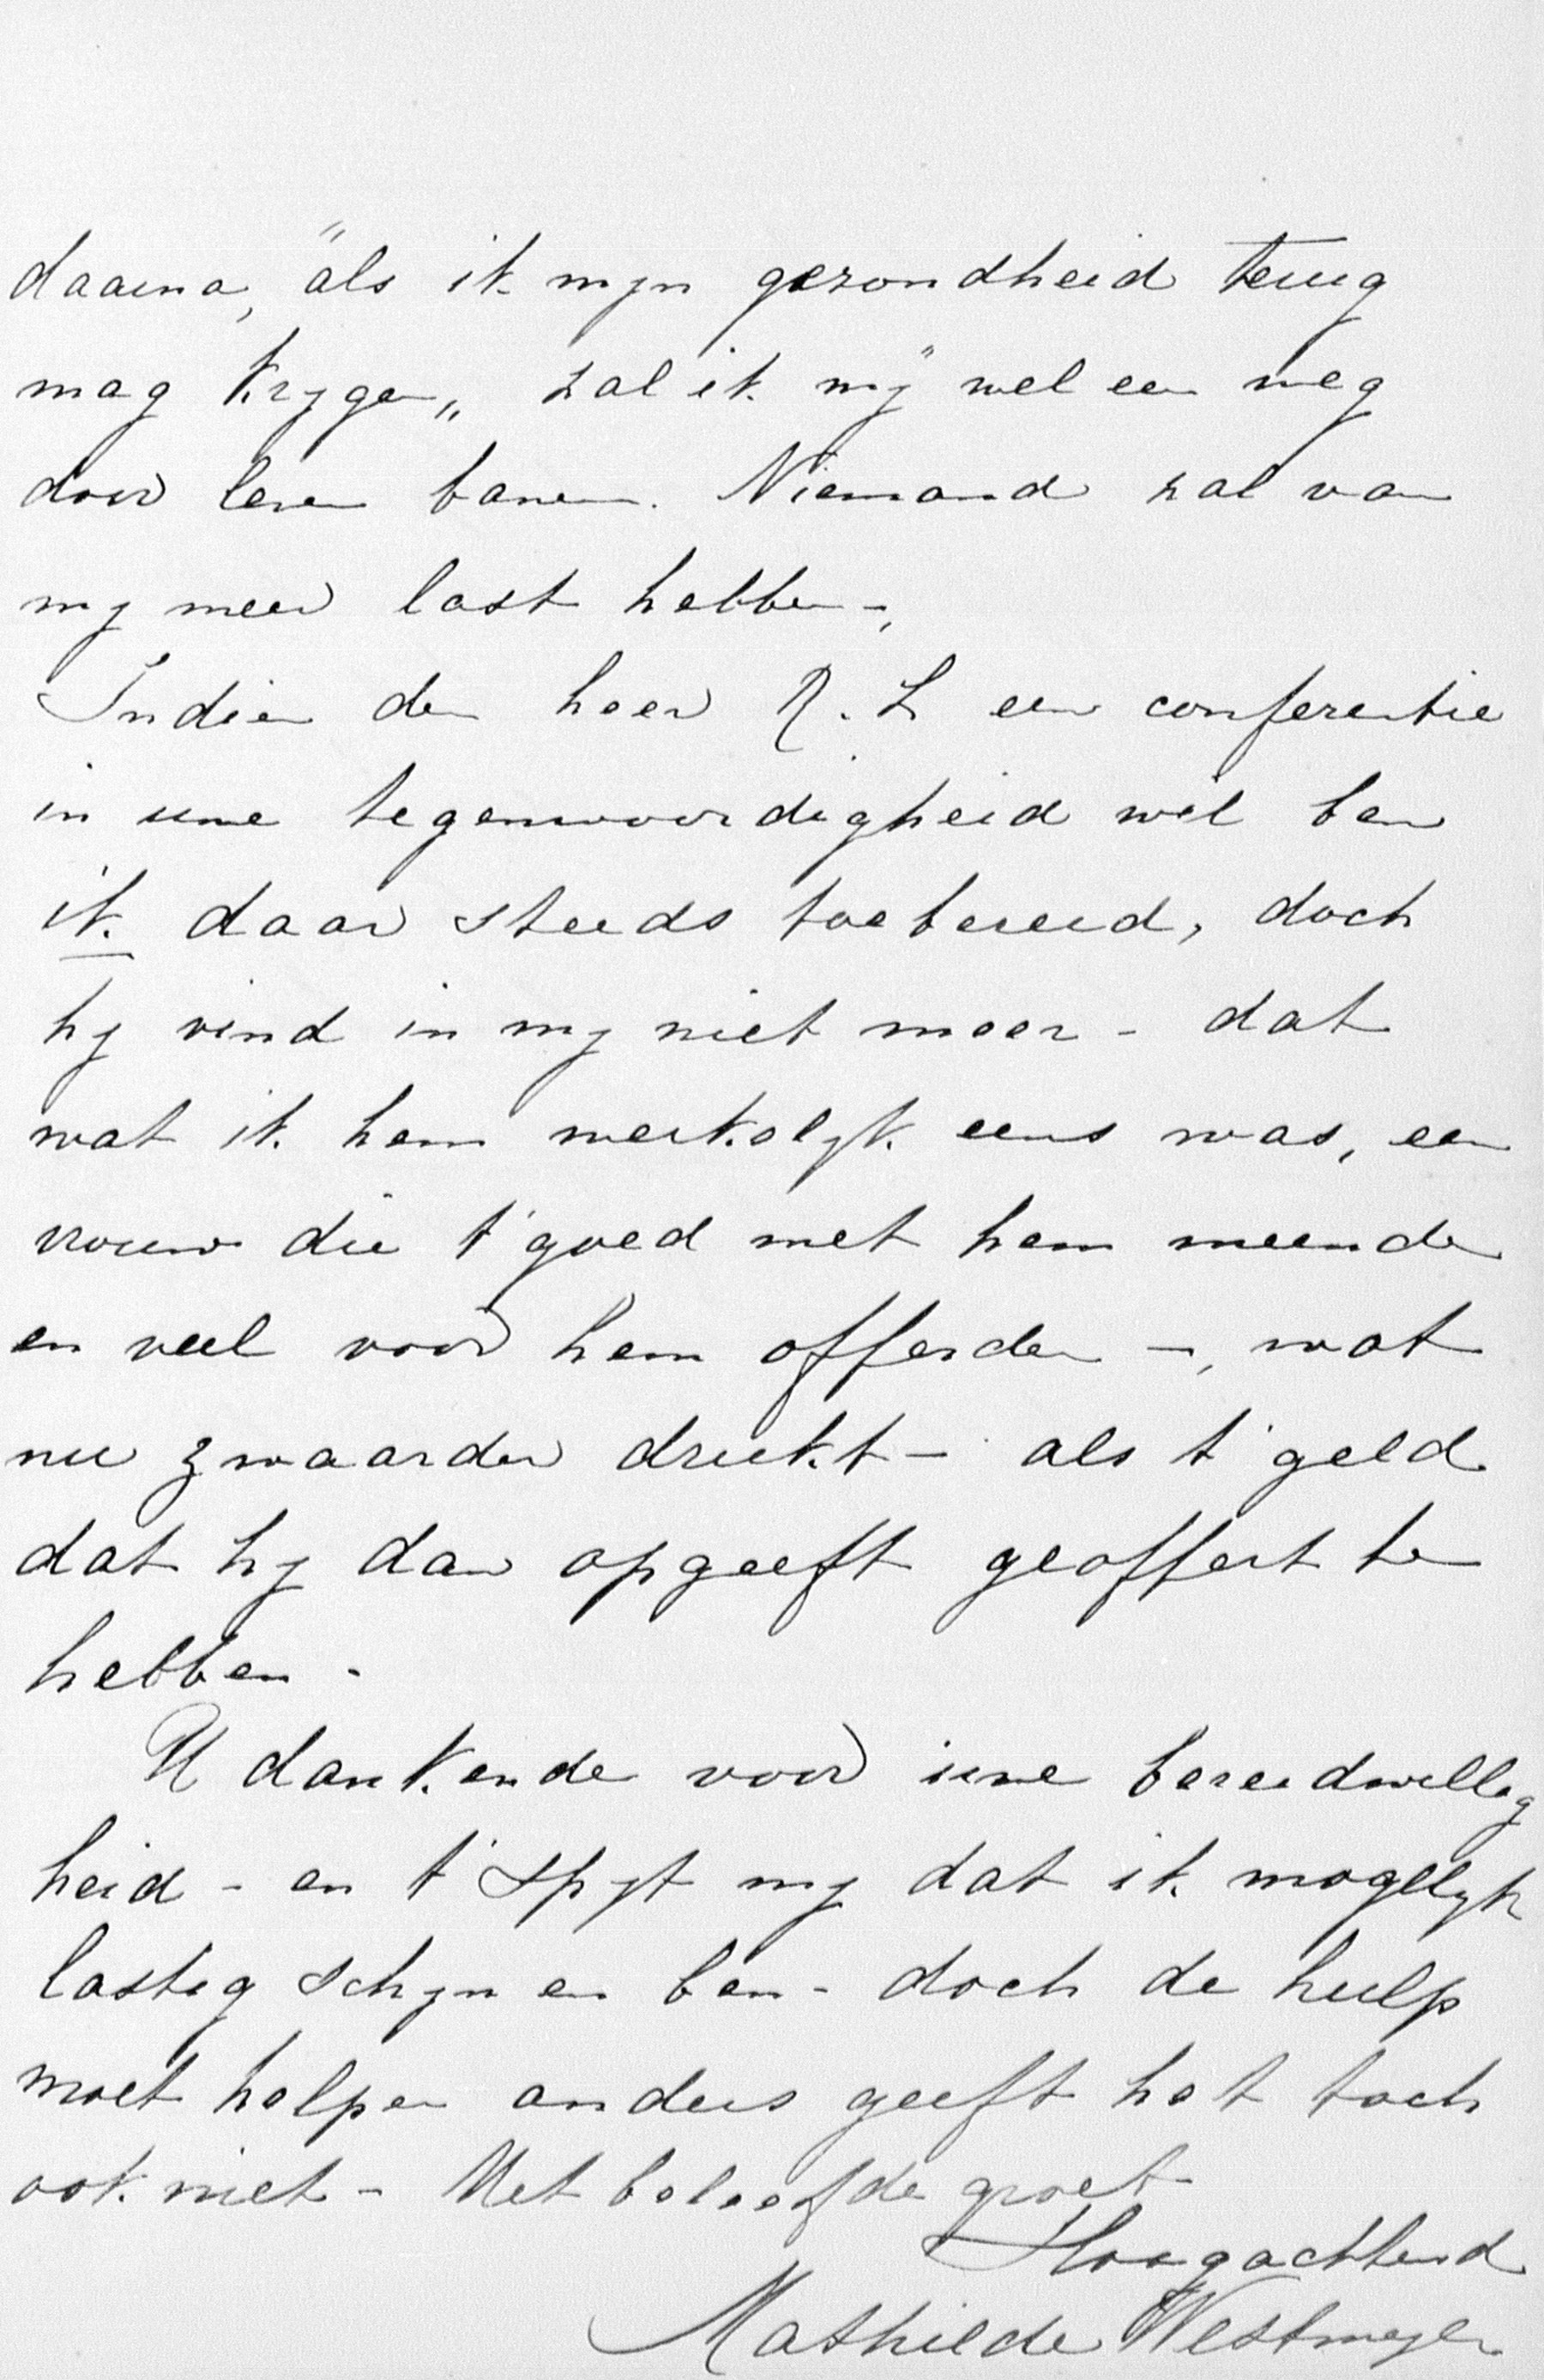 daarna, "als ik mijn gezondheid terug
mag krygen" zal ik mij wel een weg
door leven banen. Niemand zal van
my meer last hebben -,
Indien den heer R. L een conferentie
in uwe tegenwoordigheid wil ben
ik daar steeds toe bereid, doch
hy vind in my niet meer - dat
wat ik hem werkelyk eens was, een
vrouw die t'goed met hem meende
en veel voor hem offerden -, wat
nu zwaarder drukt - als t'geld
dat hy dan opgeeft geoffert te
hebben -
U dankende voor uwe bereidwillig
heid - en t'spyt my dat ik mogelyk
lastig schyn en ben - doch de hulp
moet helpen anders geeft het toch
ook niet - Met beleefde groet
Hoogachtend
Mathilde Westmeyer